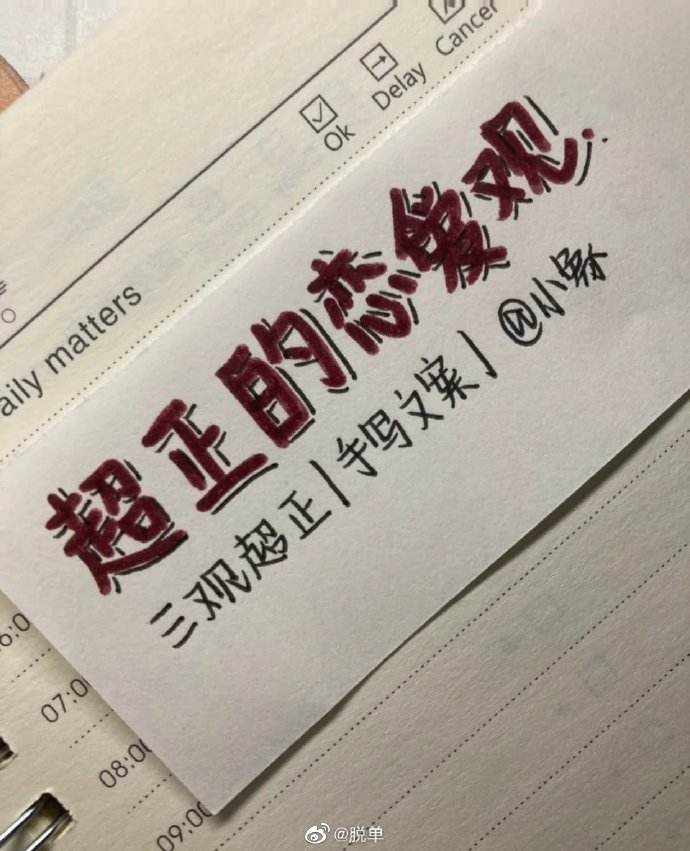 Cancel
Delay
Ok
aily matters
超正的恋爱观.
三观超正/手写文案/@小
07:0
08:00
09:00
@脱单